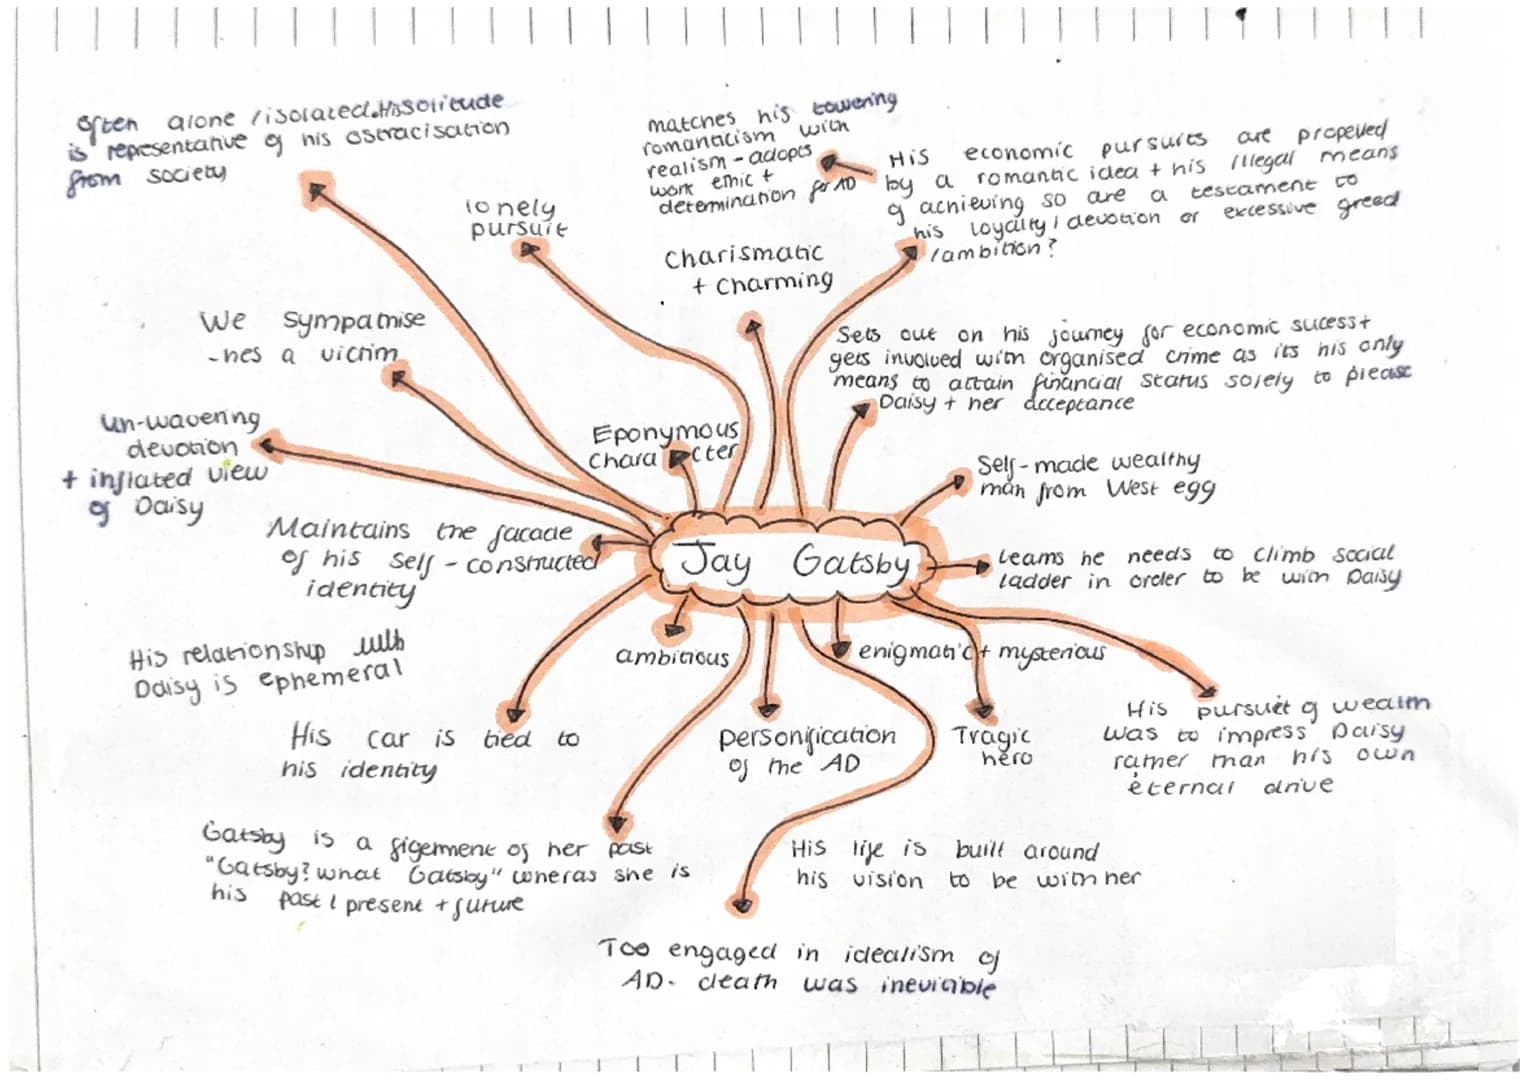 often alone / isolated. His solitude
is representative of his ostracisation
from society
lonely
pursuit
matches his towering
romanticism with
realism - adopts
work ethic +
determination for AD
His economic pursuits are propelled
by a romantic idea + his illegal means
of achieving so are a testament to
his loyalty / devotion or excessive greed
/ambition?
Charismatic
+ Charming
We sympathise
-hes a victim
Sets out on his journey for economic sucess +
gets involved with organised crime as its his only
means to attain financial status solely to please
Daisy + her acceptance
un-wavering
devotion
+ inflated view
of Daisy
Eponymous
Character
Self-made wealthy
man from West egg
Maintains the facade
of his self-constructed
identity
Jay Gatsby
Learns he needs to climb social
ladder in order to be with Daisy
His relationship with
Daisy is ephemeral
ambitious
enigmatic + mysterious
His car is tied to
his identity
personification
of the AD
Tragic
hero
His pursuit of wealth
was to impress Daisy
rather than his own
eternal drive
Gatsby is a figement of her past
"Gatsby? what Gatsby" wheras she is
his past / present + future
His life is built around
his vision to be with her
Too engaged in idealism of
AD- death was inevitible